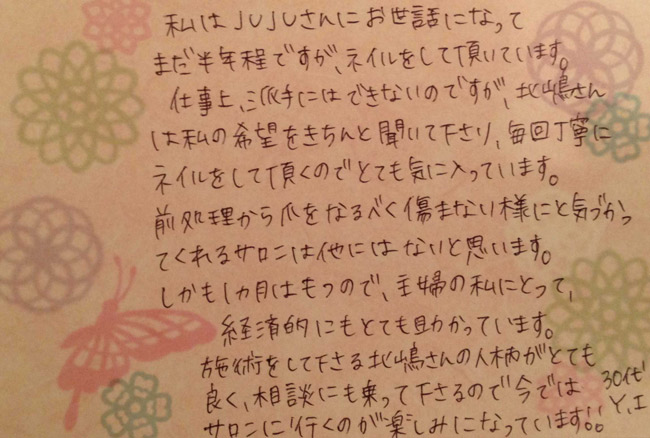 私はJUJUさんにお世話になって
まだ半年程ですが、ネイルをして頂いています。
仕事上、派手にはできないのですが、北嶋さん
は私の希望をきちんと聞いて下さり、毎回丁寧に
ネイルをして頂くのでとても気に入っています。
前処理から爪をなるべく傷まない様にと気づかっ
てくれるサロンは他にはないと思います。
しかも1カ月はもつので、主婦の私にとって、
経済的にもとても助かっています。
施術をして下さる北嶋さんの人柄がとても
良く、相談にも乗って下さるので今では
サロンに行くのが楽しみになっています!!
30代
Y.I